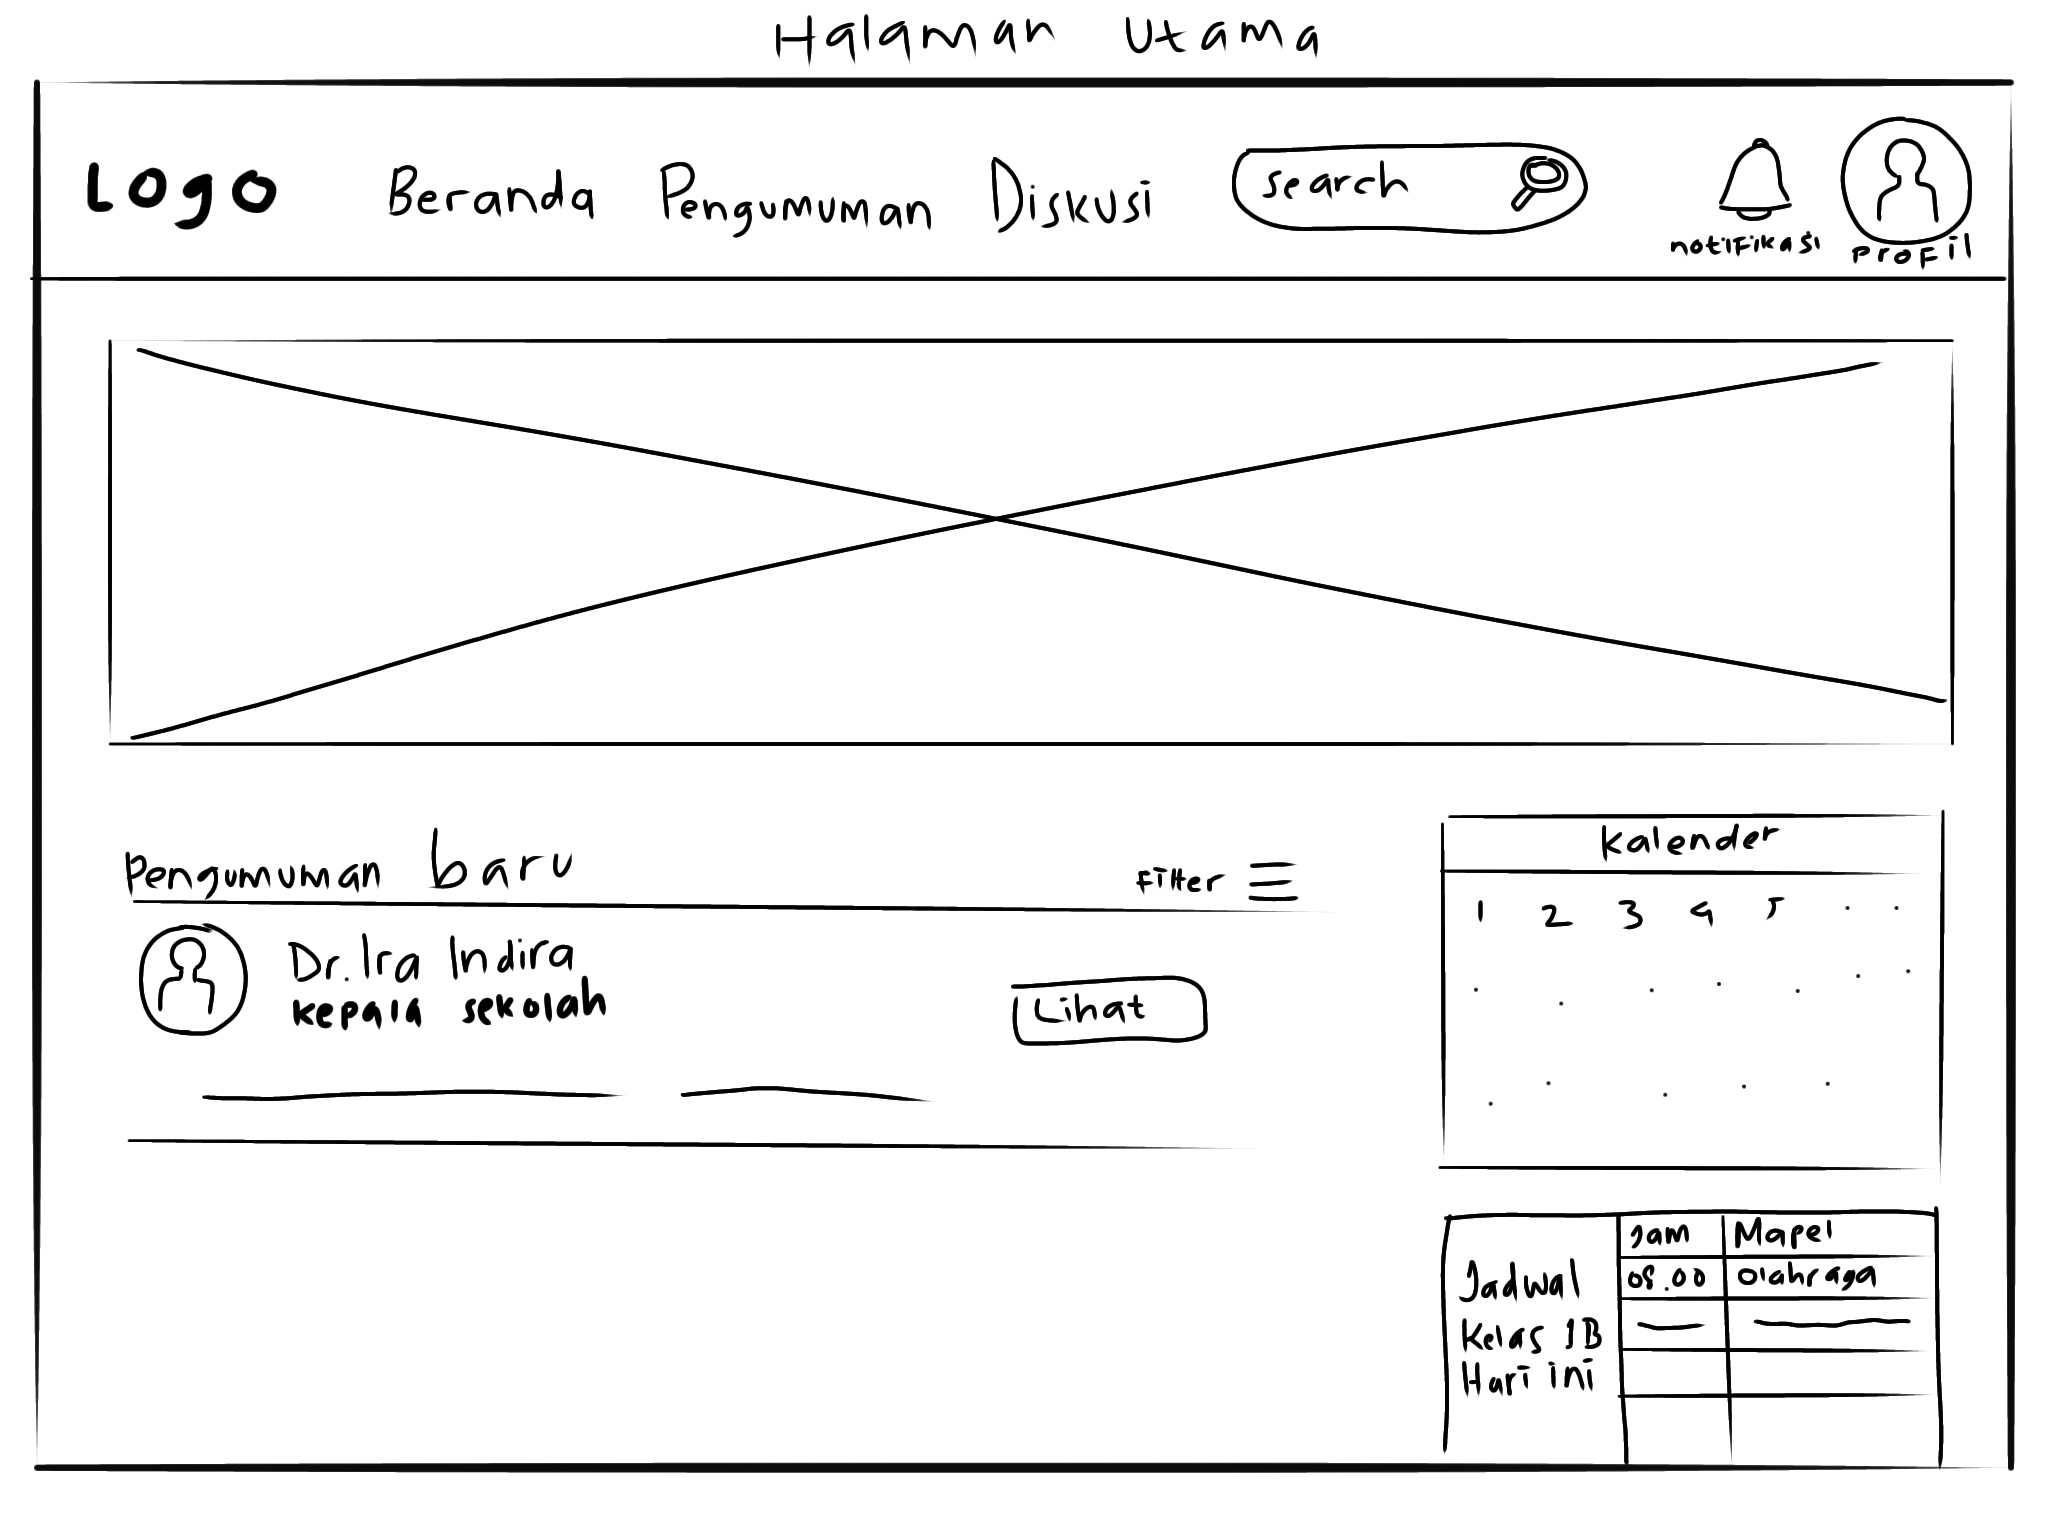 Halaman Utama
Logo Beranda Pengumuman Diskusi search
notifikasi profil
Pengumuman baru Filter
Dr. Ira Indira
kepala sekolah
Lihat
kalender
1 2 3 4 5
Jam Mapel
08.00 olahraga
Jadwal
Kelas 1B
Hari ini